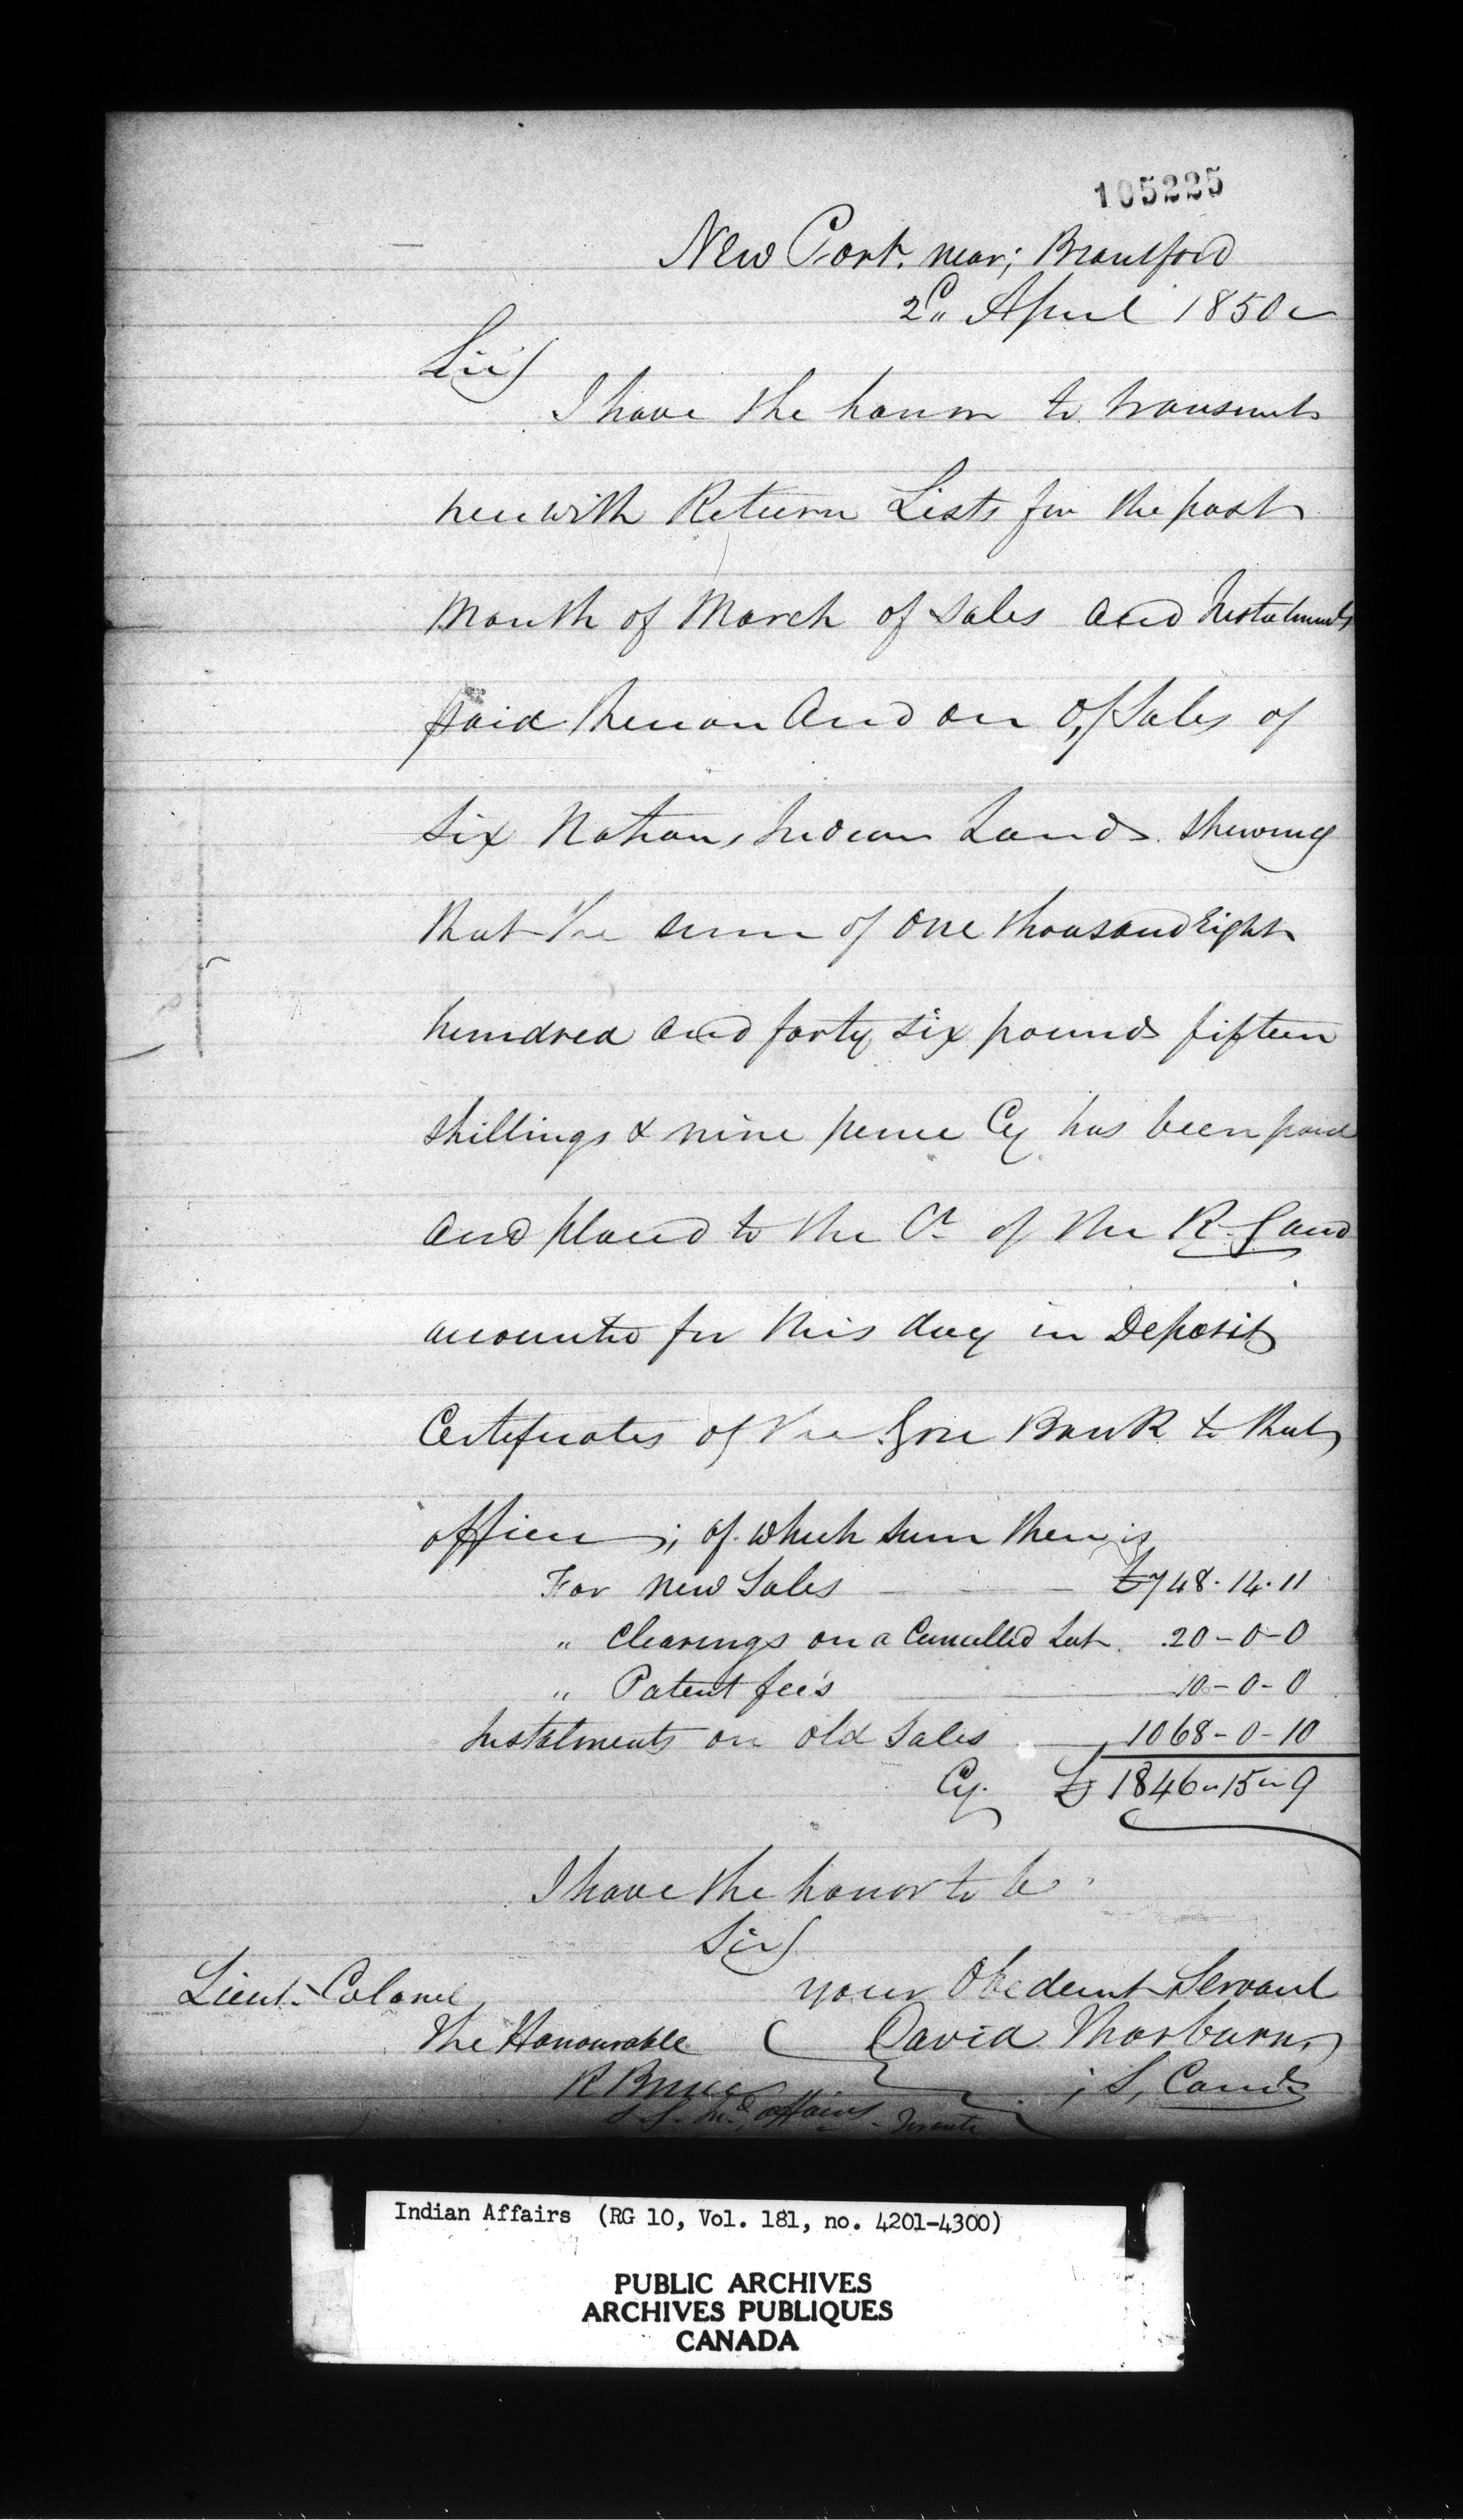 105225
New Port. near; Brantford
2d,, April 1850
Sir/
I have the honor to transmit
herewith Return Lists for the past
month of March of Sales and Instalments
paid thereon and on Sales of
Six Nations Indian Lands shewing
that the sum of one thousand Eight
hundred and forty six pounds fifteen
shillings & nine pence Cy has been paid
and placed to the Cr of the R. G and
accounted for this day in Deposit
Certificates of the Gore Bank to that
office; of which sum there is
For new Sales £748.14.11
" Clearings on a Cancelled Lot. 20-0-0
" Patent fee's 10-0-0
Instalments on old Sales 1068-0-10
Cy. £ 1846-15-9
I have the honor to be
Sir/
your Obedient Servant
Lieut. Colonel
David Thorburn
The Honourable
R Bruce
S, Comd
S. G. Ind. affairs - Toronto
Indian Affairs (RG 10, Vol. 181, no. 4201-4300)
PUBLIC ARCHIVES
ARCHIVES PUBLIQUES
CANADA